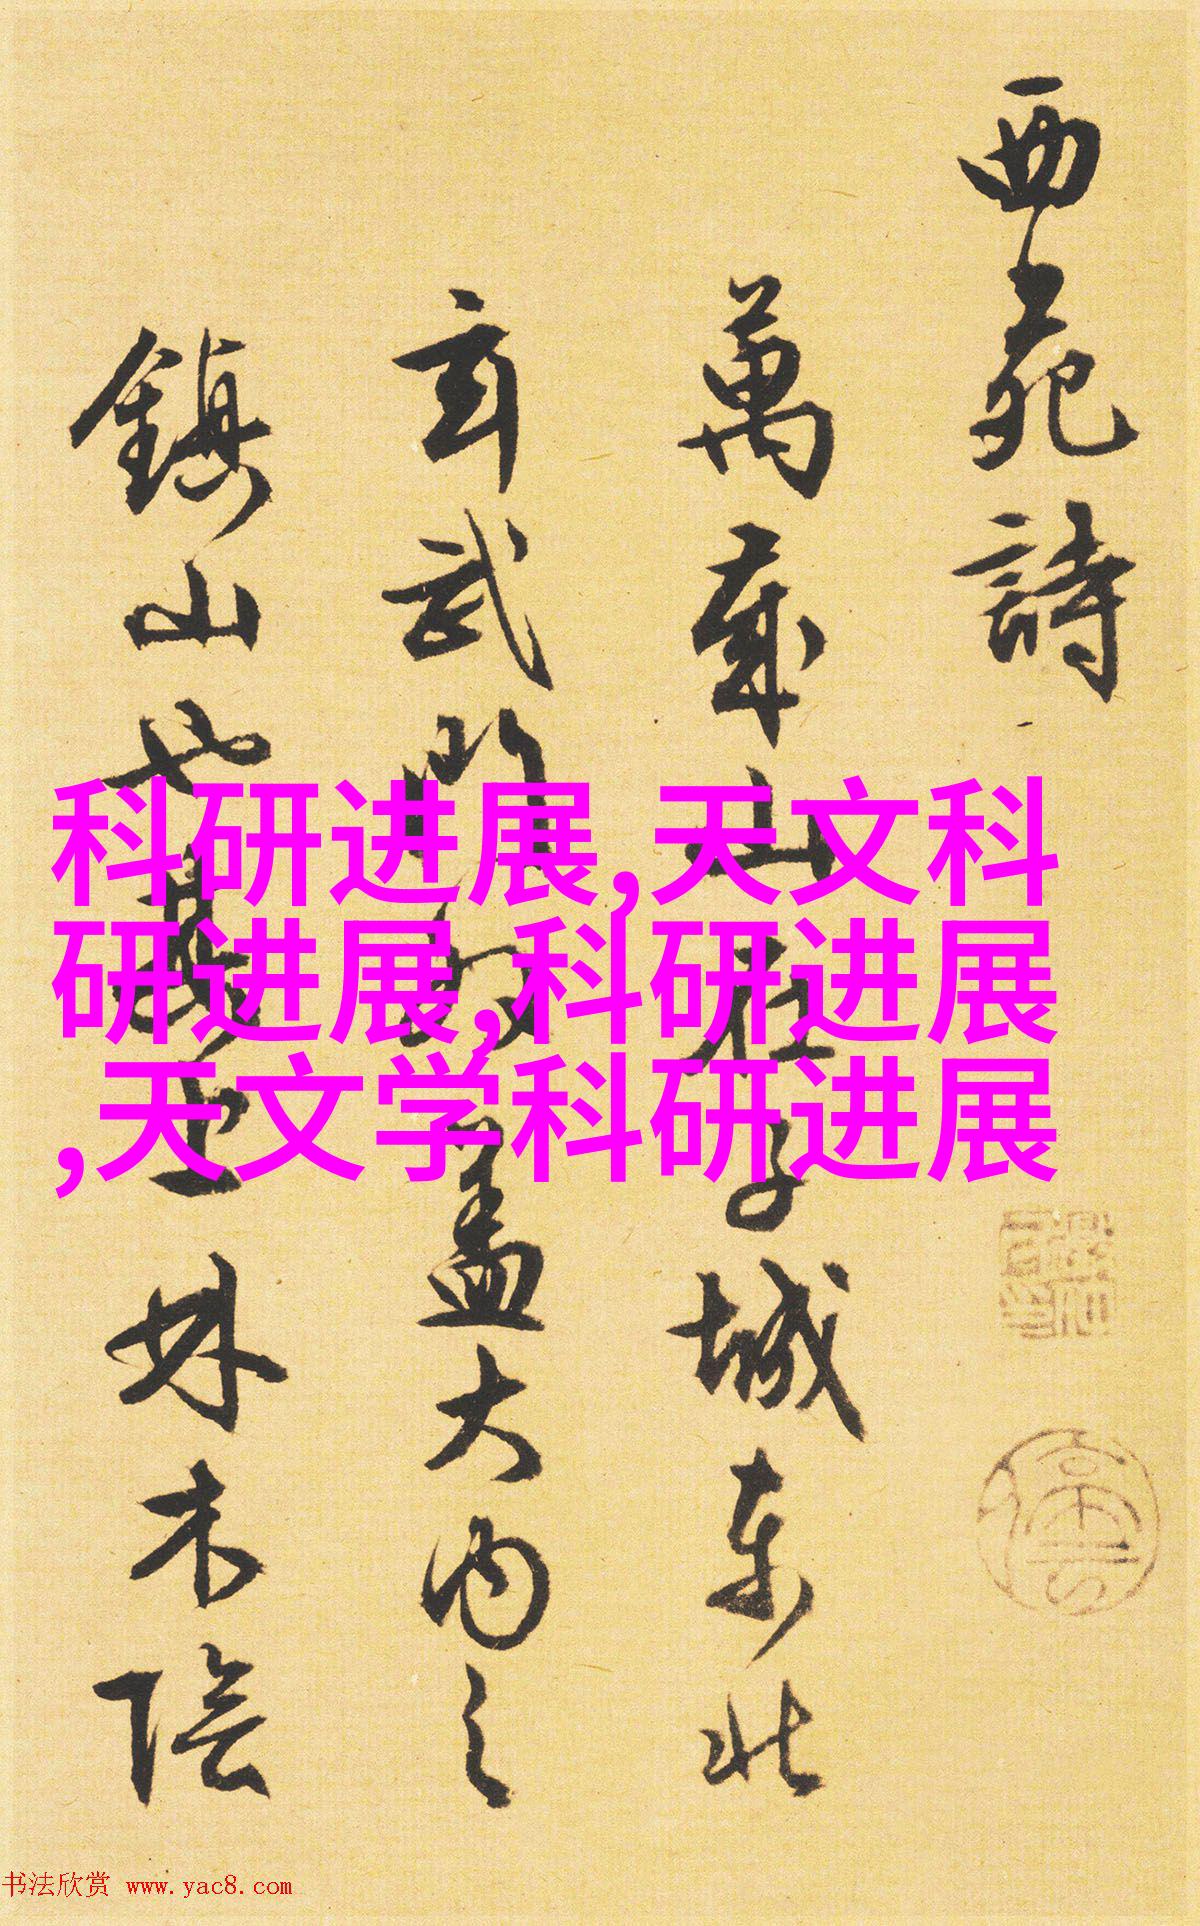 西苑詩
萬歲山在子城東北
玄武門外蓋大内之
鎮山也其上林木陰
科研进展,天文科
研进展,科研进展
,天文学科研进展
书法欣赏 www.yac8.com